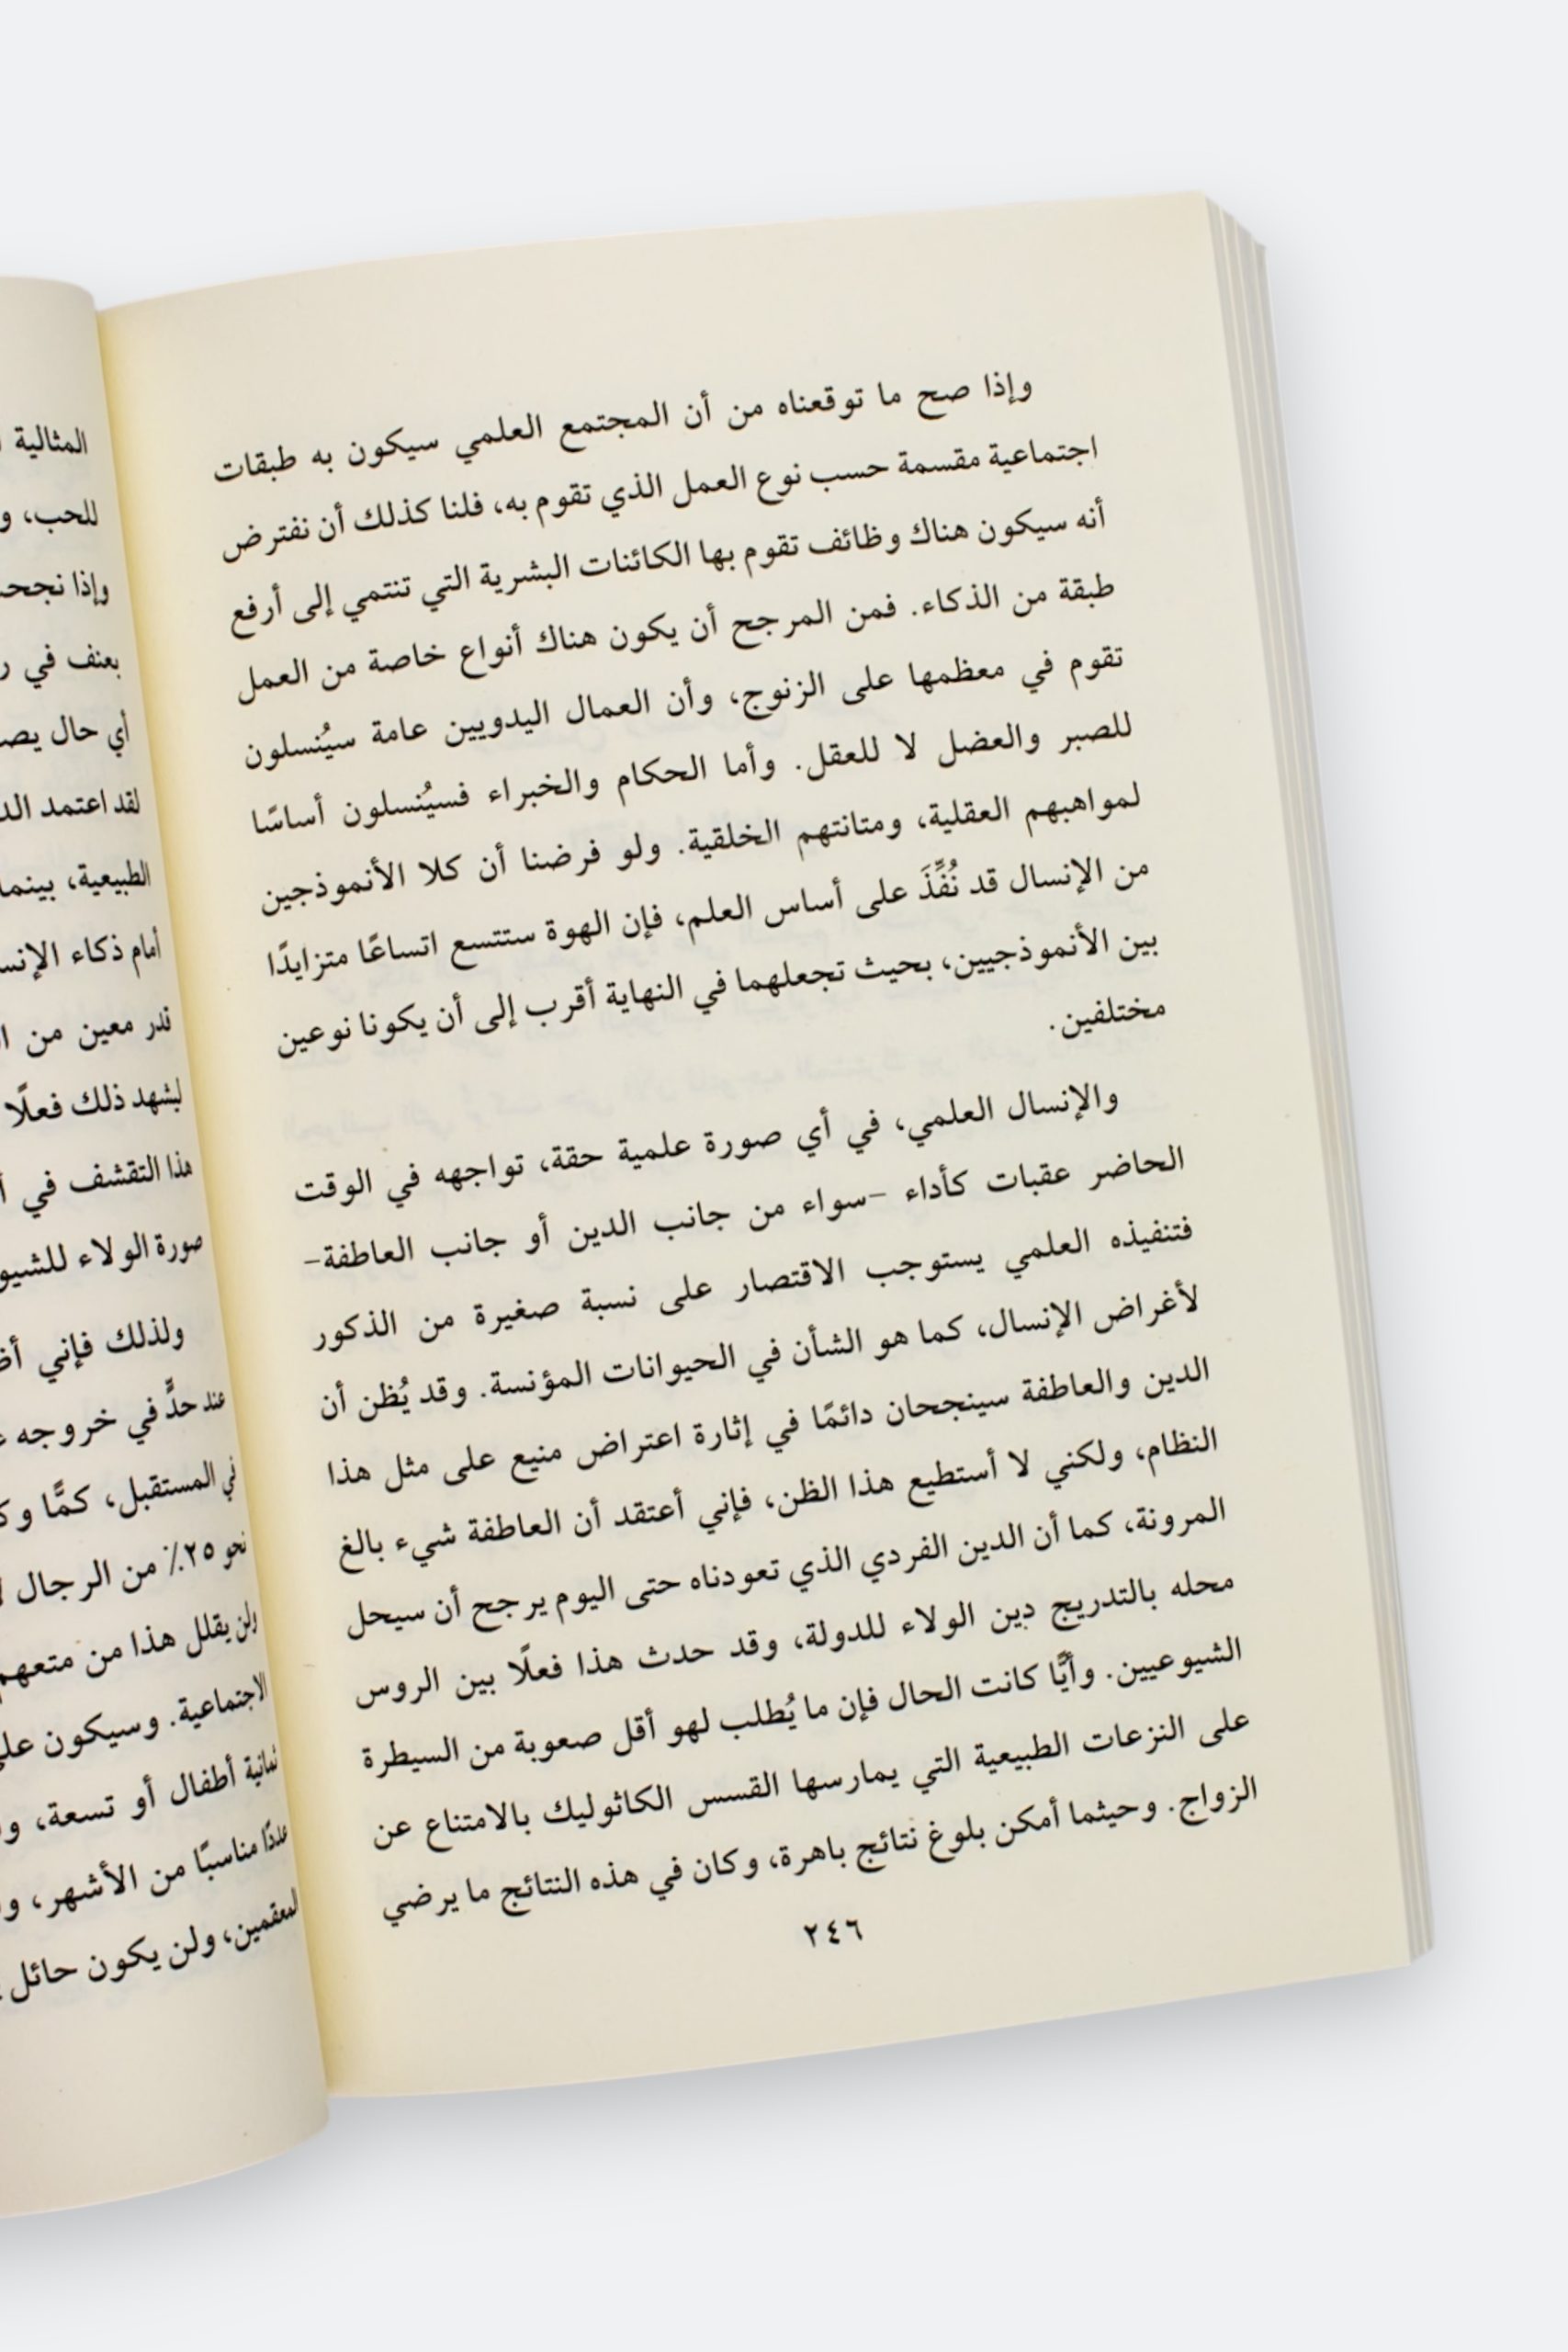 وإذا صح ما توقعناه من أن المجتمع العلمي سيكون به طبقات
اجتماعية مقسمة حسب نوع العمل الذي تقوم به، فلنا كذلك أن نفترض
أنه سيكون هناك وظائف تقوم بها الكائنات البشرية التي تنتمي إلى أرفع
طبقة من الذكاء. فمن المرجح أن يكون هناك أنواع خاصة من العمل
تقوم في معظمها على الزنوج، وأن العمال اليدويين عامة سيُنسلون
للصبر والعضل لا للعقل. وأما الحكام والخبراء فسيُنسلون أساسًا
لمواهبهم العقلية، ومتانتهم الخلقية. ولو فرضنا أن كلا الأنموذجين
من الإنسال قد نُفِّذَ على أساس العلم، فإن الهوة ستتسع اتساعًا متزايدًا
بين الأنموذجيين، بحيث تجعلهما في النهاية أقرب إلى أن يكونا نوعين
مختلفين.
والإنسال العلمي، في أي صورة علمية حقة، تواجهه في الوقت
الحاضر عقبات كأداء –سواء من جانب الدين أو جانب العاطفة–
فتنفيذه العلمي يستوجب الاقتصار على نسبة صغيرة من الذكور
لأغراض الإنسال، كما هو الشأن في الحيوانات المؤنسة. وقد يُظن أن
الدين والعاطفة سينجحان دائمًا في إثارة اعتراض منيع على مثل هذا
النظام، ولكني لا أستطيع هذا الظن، فإني أعتقد أن العاطفة شيء بالغ
المرونة، كما أن الدين الفردي الذي تعودناه حتى اليوم يرجح أن سيحل
محله بالتدريج دين الولاء للدولة، وقد حدث هذا فعلًا بين الروس
الشيوعيين. وأيًّا كانت الحال فإن ما يُطلب لهو أقل صعوبة من السيطرة
على النزعات الطبيعية التي يمارسها القسس الكاثوليك بالامتناع عن
الزواج. وحيثما أمكن بلوغ نتائج باهرة، وكان في هذه النتائج ما يرضي
٢٤٦
المثالية
للحب،
وإذا
بعنف في
أي حال
لقد اعتمد
الطبيعية، بينما
أمام ذكاء
قدر معين من
ليشهد ذلك فعلًا
هذا التقشف في
صورة الولاء
ولذلك فإني
عند حدٍّ في خروجه
في المستقبل، كمًّا
نحو ٢٥٪ من الرجال
ولن يقلل هذا من متعهم
الاجتماعية. وسيكون
ثمانية أطفال أو تسعة،
عددًا مناسبًا من الأشهر،
المعقمين، ولن يكون حائل